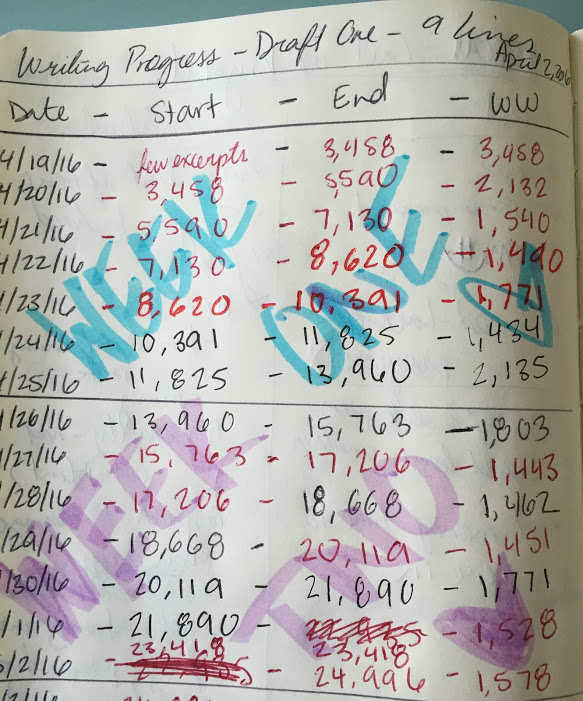 Writing Progress - Draft One - 9 Lines
April 2, 2016
Date - Start - End - WW
4/19/16 - few excerpts - 3,458 - 3,458
4/20/16 - 3,458 - 5,590 - 2,132
4/21/16 - 5,590 - 7,130 - 1,540
4/22/16 - 7,130 - 8,620 - 1,490
/23/16 - 8,620 - 10,391 - 1,771
/24/16 - 10,391 - 11,825 - 1,434
/25/16 - 11,825 - 13,960 - 2,135
WEEK ONE
/26/16 - 13,960 - 15,763 - 1,803
/27/16 - 15,763 - 17,206 - 1,443
/28/16 - 17,206 - 18,668 - 1,462
/29/16 - 18,668 - 20,119 - 1,451
/30/16 - 20,119 - 21,890 - 1,771
/1/16 - 21,890 - 23,418 - 1,528
/2/16 - 23,418 - 24,996 - 1,578
WEEK TWO